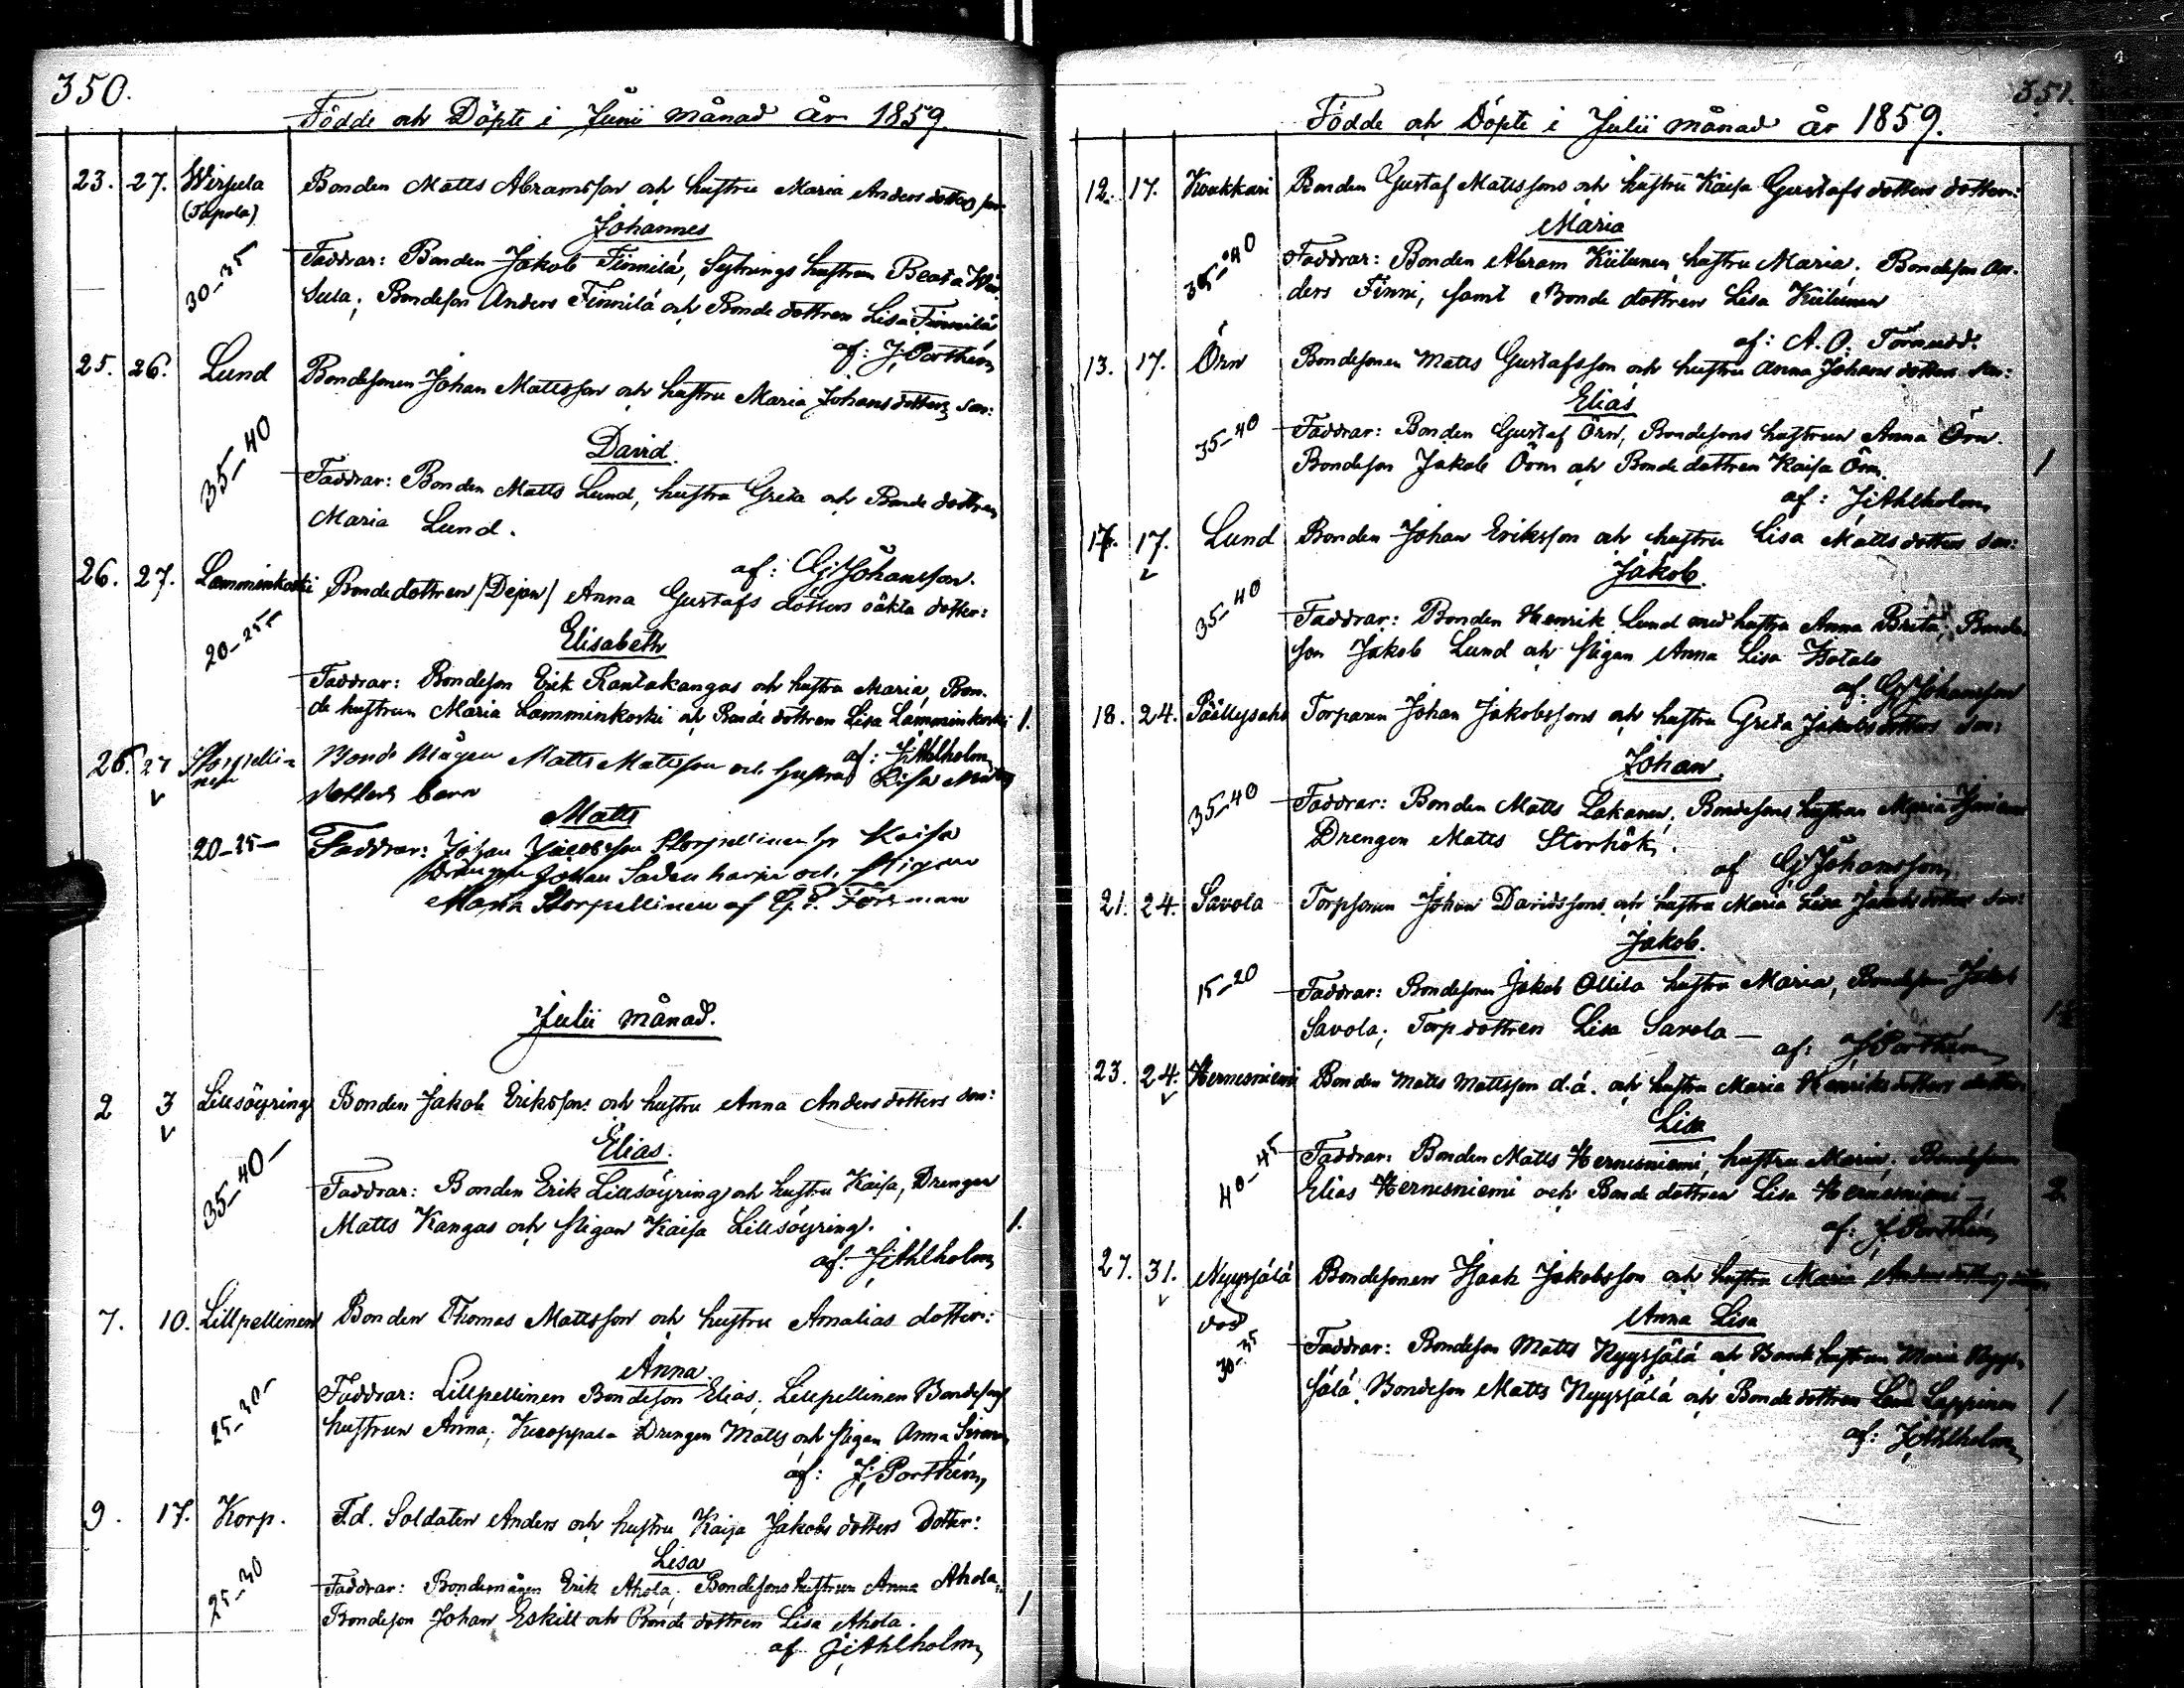 350.
Födde och Döpte i Junii månad år 1859.
23. 27. Wirpula Bonden Matts Abramsson och hustru Maria Anders dotters son:
(Tapola)
Johannes
30-35 Faddrar: Bonden Jakob Finnilä, Sytnings hustrun Beata
Bondeson Anders Finnilä och Bonde dottren Lisa Finnilä
af: J. Porthén
25. 26. Lund Bondesonen Johan Mattsson och hustru Maria Johans dotters son:
David.
35-40 Faddrar: Bonden Matts Lund, hustru Greta och Bonde dottren
Maria Lund.
af: Gj Johansson.
26. 27. Lamminkoski Bondedottren (Dejan) Anna Gustafs dotters oäkta dotter:
Elisabeth
20-25- Faddrar: Bondeson Erik Rantakangas och hustru Maria, Bon-
de hustrun Maria Lamminkoski och Bonde dottren Lisa Lamminkoski 1.
af: J. Ahlholm
26. 27 Storpelli-nen Bonde Mågen Matts Mattsson och hustru Lisa Matts
dotters barn
Matts
20-25- Faddrar: Johan Jacobsson Storpellinen h. Kaisa
Drängen Johan Sadenharju och Pigan
Maria Storpellinen af G. P. Forsman
Julii månad.
2 3 Lillsöyring Bonden Jakob Erikssons och hustru Anna Anders dotters son:
Elias.
35-40- Faddrar: Bonden Erik Lillsöyring och hustru Kaisa, Drengen
Matts Kangas och Pigan Kaisa Lillsöyring. 1.
af: J. Ahlholm
7. 10. Lillpellinen Bonden Thomas Mattsson och hustru Amalias dotter:
Anna.
25-30- Faddrar: Lillpellinen Bondeson Elias, Lillpellinen Bondesons
hustrun Anna, Kuoppala Drengen Matts och Pigan Anna
af: J. Porthén
9. 17. Korp. F.d. Soldaten Anders och hustru Kaisa Jakobs dotters dotter:
Lisa
25-30 Faddrar: Bondemågen Erik Ahola, Bondesons hustrun Anna Ahola,
Bondeson Johan Eskill och Bonde dottren Lisa Ahola. 1
af J. Ahlholm
351.
Födde och Döpte i Julii månad år 1859.
12. 17. Kuakkari Bonden Gustaf Mattssons och hustru Kaisa Gustafs dotters dotter:
Maria
35-40 Faddrar: Bonden Abram Kiilunen hustru Maria, Bondeson An-
ders Finni, samt Bonde dottren Lisa Kiilunen
af: A. O. Törnudd.
13. 17. Örn Bondesonen Matts Gustafsson och hustru Anna Johans dotters son:
Elias
35-40 Faddrar: Bonden Gustaf Örn, Bondesons hustrun Anna Örn.
Bondeson Jakob Örn och Bonde dottren Kaisa Örn 1
af: J. Ahlholm
17. 17. Lund Bonden Johan Eriksson och hustru Lisa Matts dotters son:
Jakob.
35-40 Faddrar: Bonden Henrik Lund med hustru Anna Brita, Bonde
son Jakob Lund och Pigan Anna Lisa
af: Gj Johansson
18. 24. Päällysaho Torparen Johan Jakobssons och hustru Greta Jakobs dotters son:
Johan.
35-40 Faddrar: Bonden Matts Lakanen, Bondesons hustrun Maria
Drengen Matts Storhök.
af Gj Johansson
21. 24. Savola Torpsonen Johan Davidssons och hustru Maria Lisa Jakobs dotters son:
Jakob.
15-20 Faddrar: Bondesonen Jakob Ollila hustru Maria, Bondeson Jakob
Savola, Torp dottren Lisa Savola —
af: J. Porthén
23. 24. Hernesniemi Bonden Matts Mattsson d.ä. och hustru Maria Henriks dotters dotter
Lisa
40-45 Faddrar: Bonden Matts Hernesniemi, hustru Maria, Bondesonen
Elias Hernesniemi och Bonde dottren Lisa Hernesniemi — 2
af: J. Porthén
27. 31. Nyyssälä Bondesonen Isaak Jakobsson och hustru Maria Anders dotters
död
Anna Lisa
30-35 Faddrar: Bondeson Matts Nyyssälä och Bonde hustrun Maria Nyys-
sälä, Bondeson Matts Nyyssälä och Bonde dottren Lappinen 1
af: J. Ahlholm